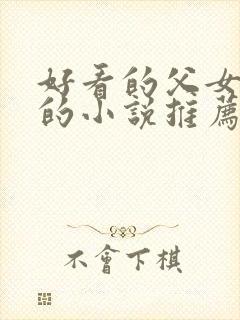 好看的父女
的小說推薦
不會下棋